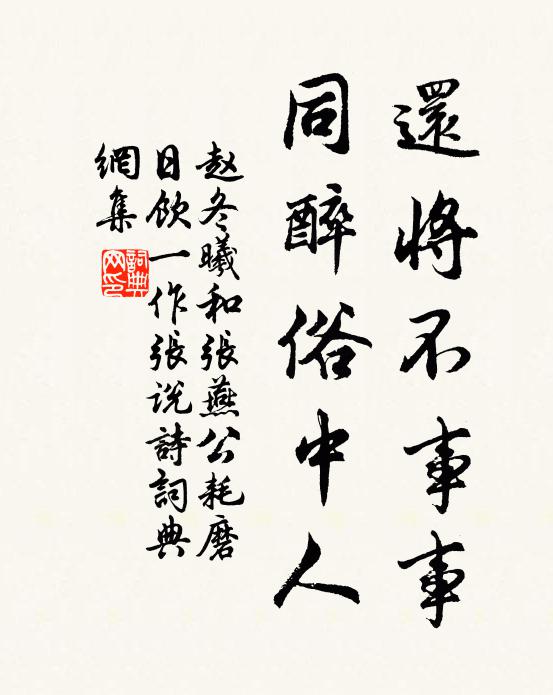 還將不事事
同醉俗中人
赵冬曦和張燕公耗磨
日飲一作張说詩詞典
網集
詞典
网印